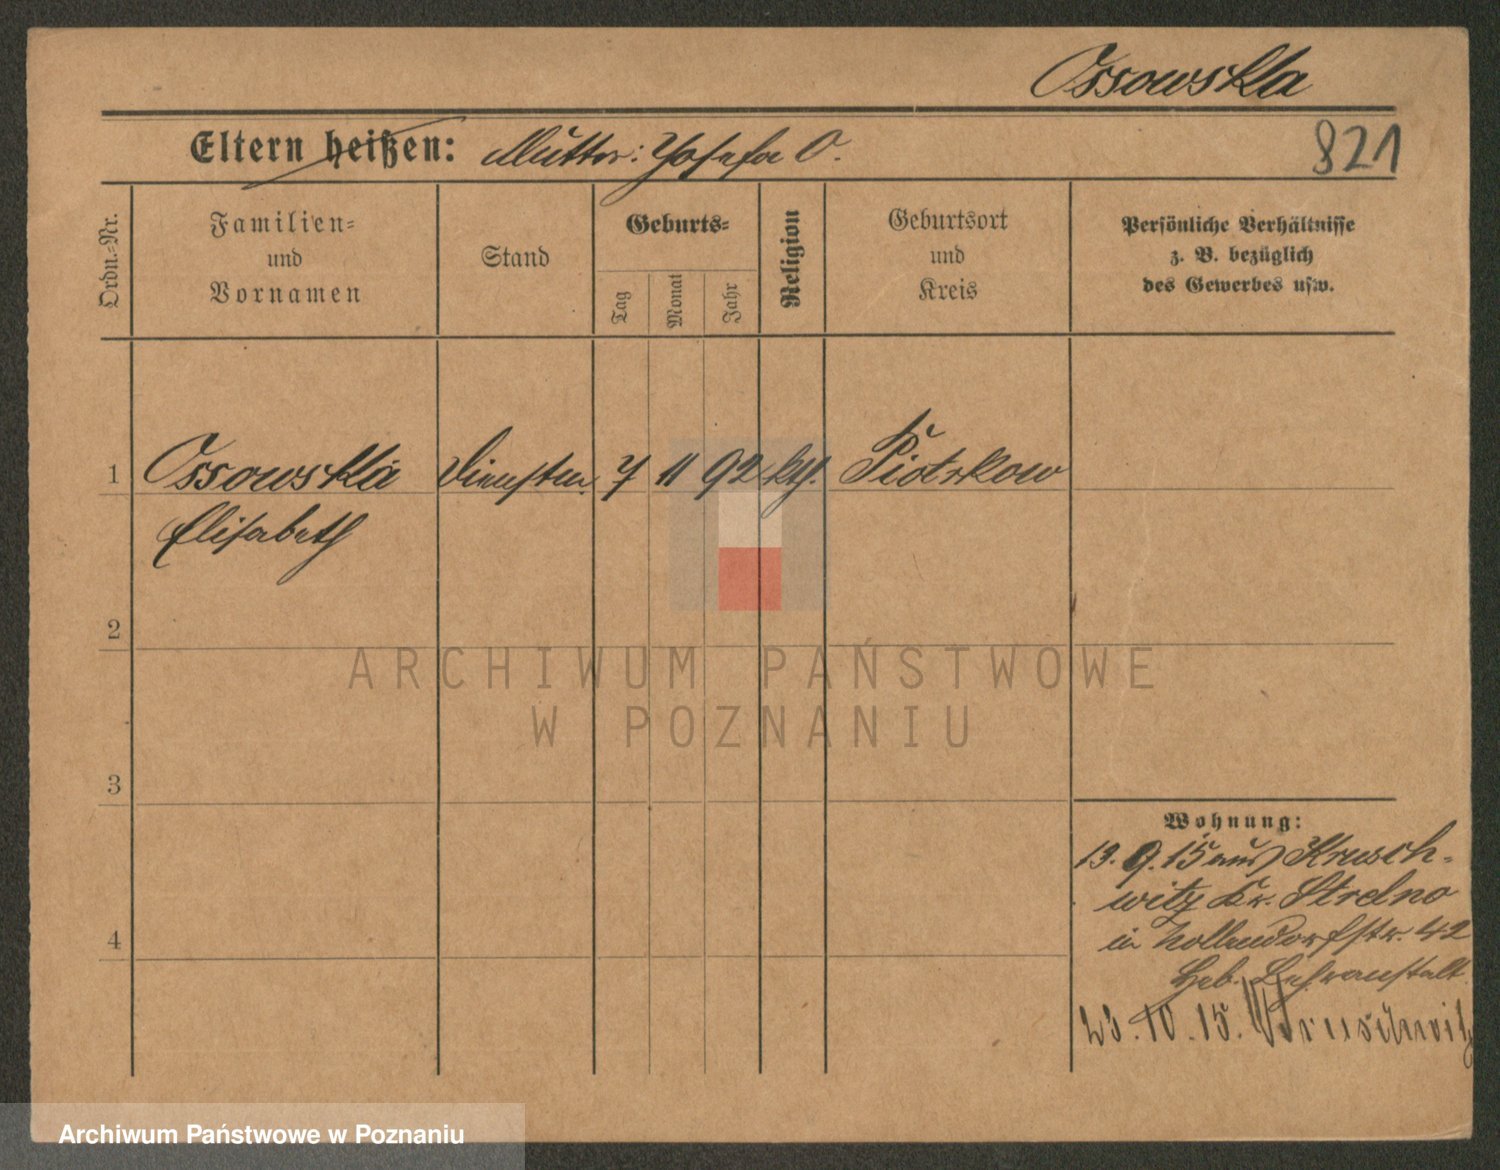 Ossowska
Eltern heißen: Mutter: Josefa O.
821
Ordn.-Nr.
Familien-
und
Vornamen
Stand
Geburts-
Tag
Monat
Jahr
Religion
Geburtsort
und
Kreis
Persönliche Verhältnisse
z. B. bezüglich
des Gewerbes usw.
1 Ossowska Dienstm. 7 11 92 kth. Piotrkow
Elisabeth
2
3
4
Wohnung:
13.9.15 aus Krusch-
witz Kr. Strelno
in Hollendorfstr. 42
Heb. Lehranstalt
23.10.15. Kruschwitz
ARCHIWUM PAŃSTWOWE
W POZNANIU
Archiwum Państwowe w Poznaniu